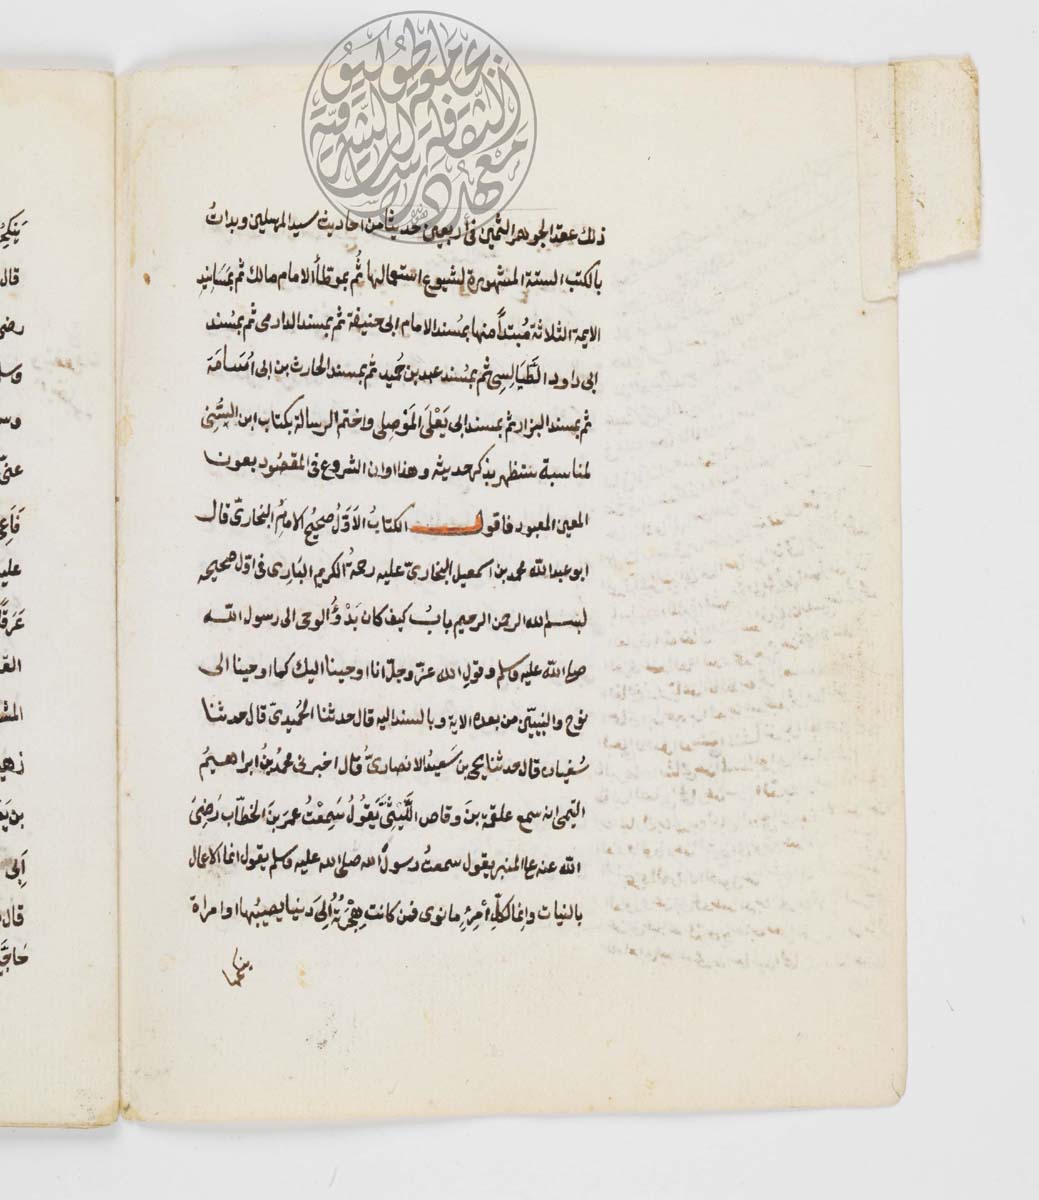 جامعة طوكيو
معهد دراسات الثقافة الشرقية
ذلك عقد الجوهر الثمين فى أربعين حديثا من احاديث سيد المرسلين وبدات
بالكتب الستة المشهورة لشيوع استعمالها ثُم بموطأ الامام مالك ثم بمسَانِيدِ
الايمة الثلاثة مُبتدأ منها بمسند الامام ابى حنيفة ثم بمسند الدارمى ثم بمسند
ابى داود الطَّيَالِسِى ثم بمسند عبد بن حُميد ثم بمسند الحارث بن ابى اُسَامَة
ثم بمسند البزار ثم بمسند ابى يَعْلَى المَوْصِلى واختم الرسالة بكتاب ابن السُّنِى
لمناسبة ستظهر بذكر حديثه وهذا اوان الشروع فى المقصُود بعون
المعين المعبود فاقول الكتابُ الاَوّلُ صحيحُ الامامُ البخارىّ قال
ابو عبد الله محمد بن اسمعيل البخارىّ عليه رحمةُ الكريم البَارِى فى اوّل صحيحه
بسم الله الرحمن الرحيم بابُ كيف كان بَدْؤُ الوحى الى رسول الله
صلى الله عليه وسلم وقولِ الله عزّ وجلّ انا اوحينا اليك كما اوحينا الى
نوح والنبيّين من بعده الاية وبالسند اليه قال حدثنا الحُميدىّ قال حدثنا
سُفيان قال حدثنا يحيى بن سَعيدُ الانصارىّ قال اخبرنى محمدُ بنُ ابراهيمُ
التيمى انه سمع علقمة بنَ وقاص اللَّيْثِيَّ يَقولُ سَمِعْتُ عمرَ بنَ الخطّاب رَضِىَ
الله عنه على المنبر يقول سمعتُ رسولُ الله صلى الله عليه وسلم يقول انما الاعمال
بالنيات واِنما لكلّ أمرِءٍ ما نوى فمن كانت هِجْرَتُهُ اِلىَ دنيا يصيبُها او امراة
ينكحها